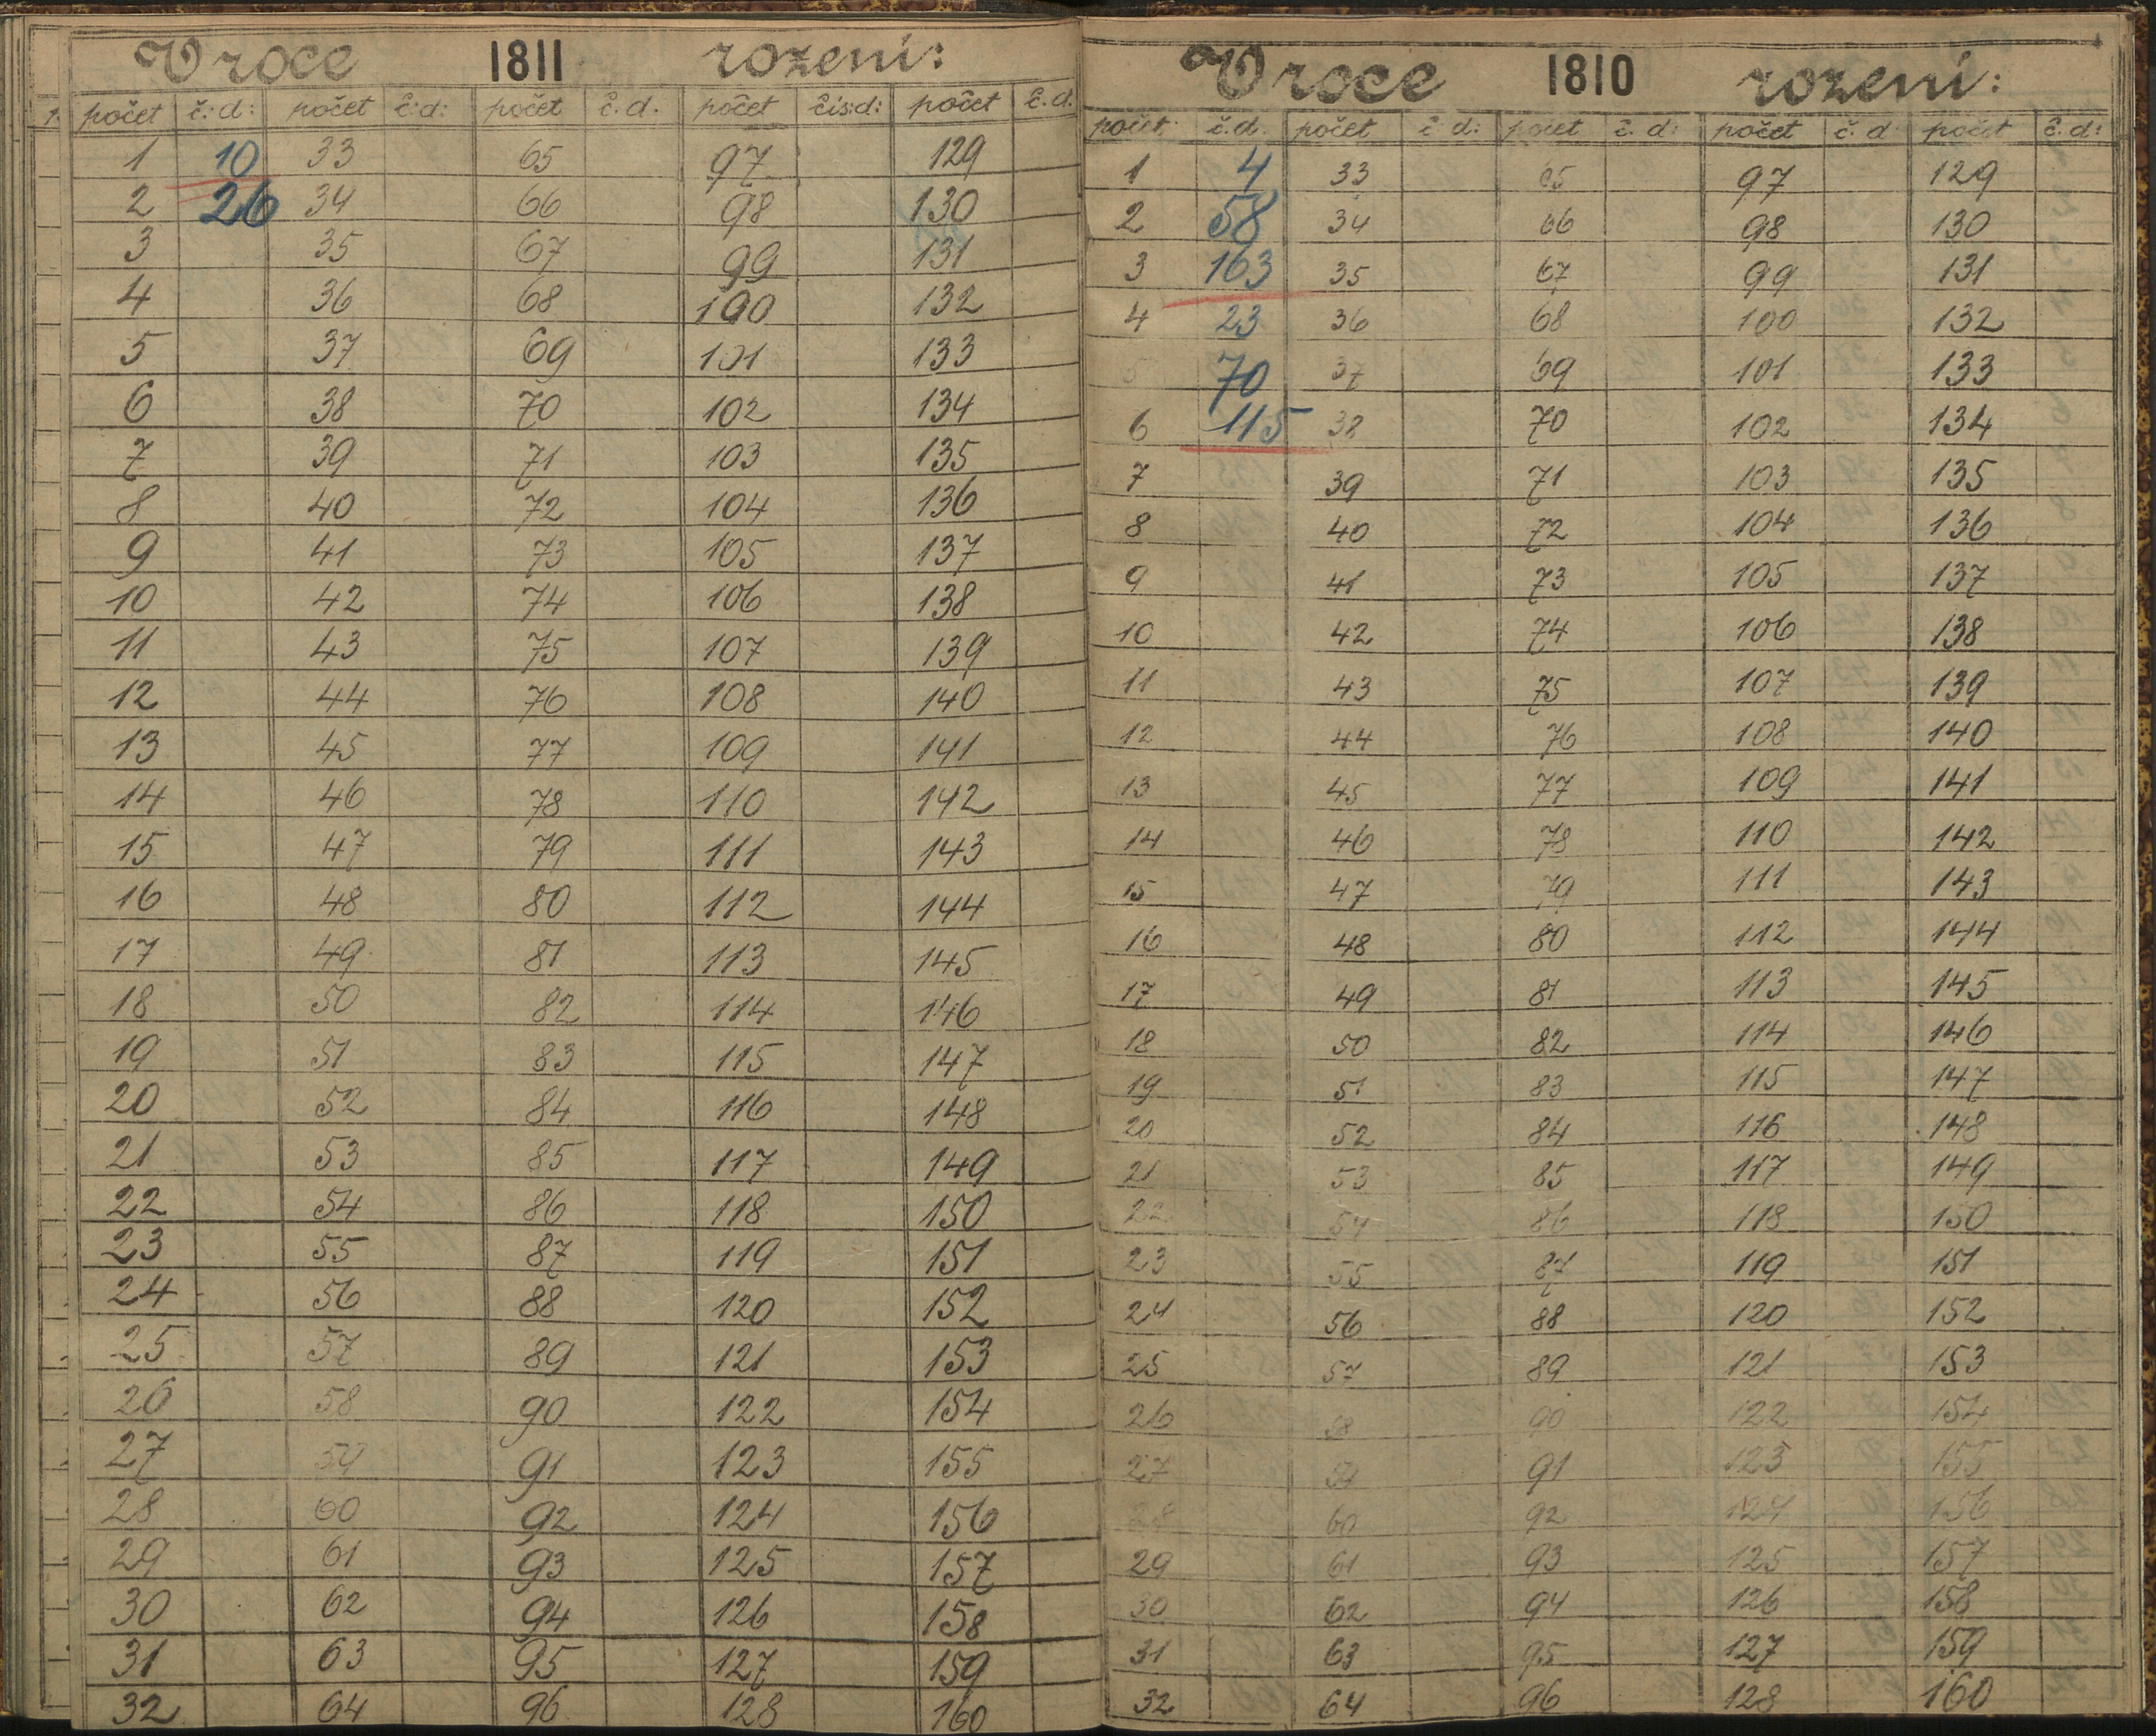 V roce 1811 rozeni:
počet č: d: počet č: d: počet č. d. počet čis: d: počet č. d.
1 10 33 65 97 129
2 26 34 66 98 130
3 35 67 99 131
4 36 68 100 132
5 37 69 101 133
6 38 70 102 134
7 39 71 103 135
8 40 72 104 136
9 41 73 105 137
10 42 74 106 138
11 43 75 107 139
12 44 76 108 140
13 45 77 109 141
14 46 78 110 142
15 47 79 111 143
16 48 80 112 144
17 49 81 113 145
18 50 82 114 146
19 51 83 115 147
20 52 84 116 148
21 53 85 117 149
22 54 86 118 150
23 55 87 119 151
24 56 88 120 152
25 57 89 121 153
26 58 90 122 154
27 59 91 123 155
28 60 92 124 156
29 61 93 125 157
30 62 94 126 158
31 63 95 127 159
32 64 96 128 160
V roce 1810 rozeni:
počet č. d. počet č d: počet č. d: počet č. d počet č. d:
1 4 33 65 97 129
2 58 34 66 98 130
3 163 35 67 99 131
4 23 36 68 100 132
5 70 37 69 101 133
6 115 38 70 102 134
7 39 71 103 135
8 40 72 104 136
9 41 73 105 137
10 42 74 106 138
11 43 75 107 139
12 44 76 108 140
13 45 77 109 141
14 46 78 110 142
15 47 79 111 143
16 48 80 112 144
17 49 81 113 145
18 50 82 114 146
19 51 83 115 147
20 52 84 116 148
21 53 85 117 149
22 54 86 118 150
23 55 87 119 151
24 56 88 120 152
25 57 89 121 153
26 58 90 122 154
27 59 91 123 155
28 60 92 124 156
29 61 93 125 157
30 62 94 126 158
31 63 95 127 159
32 64 96 128 160